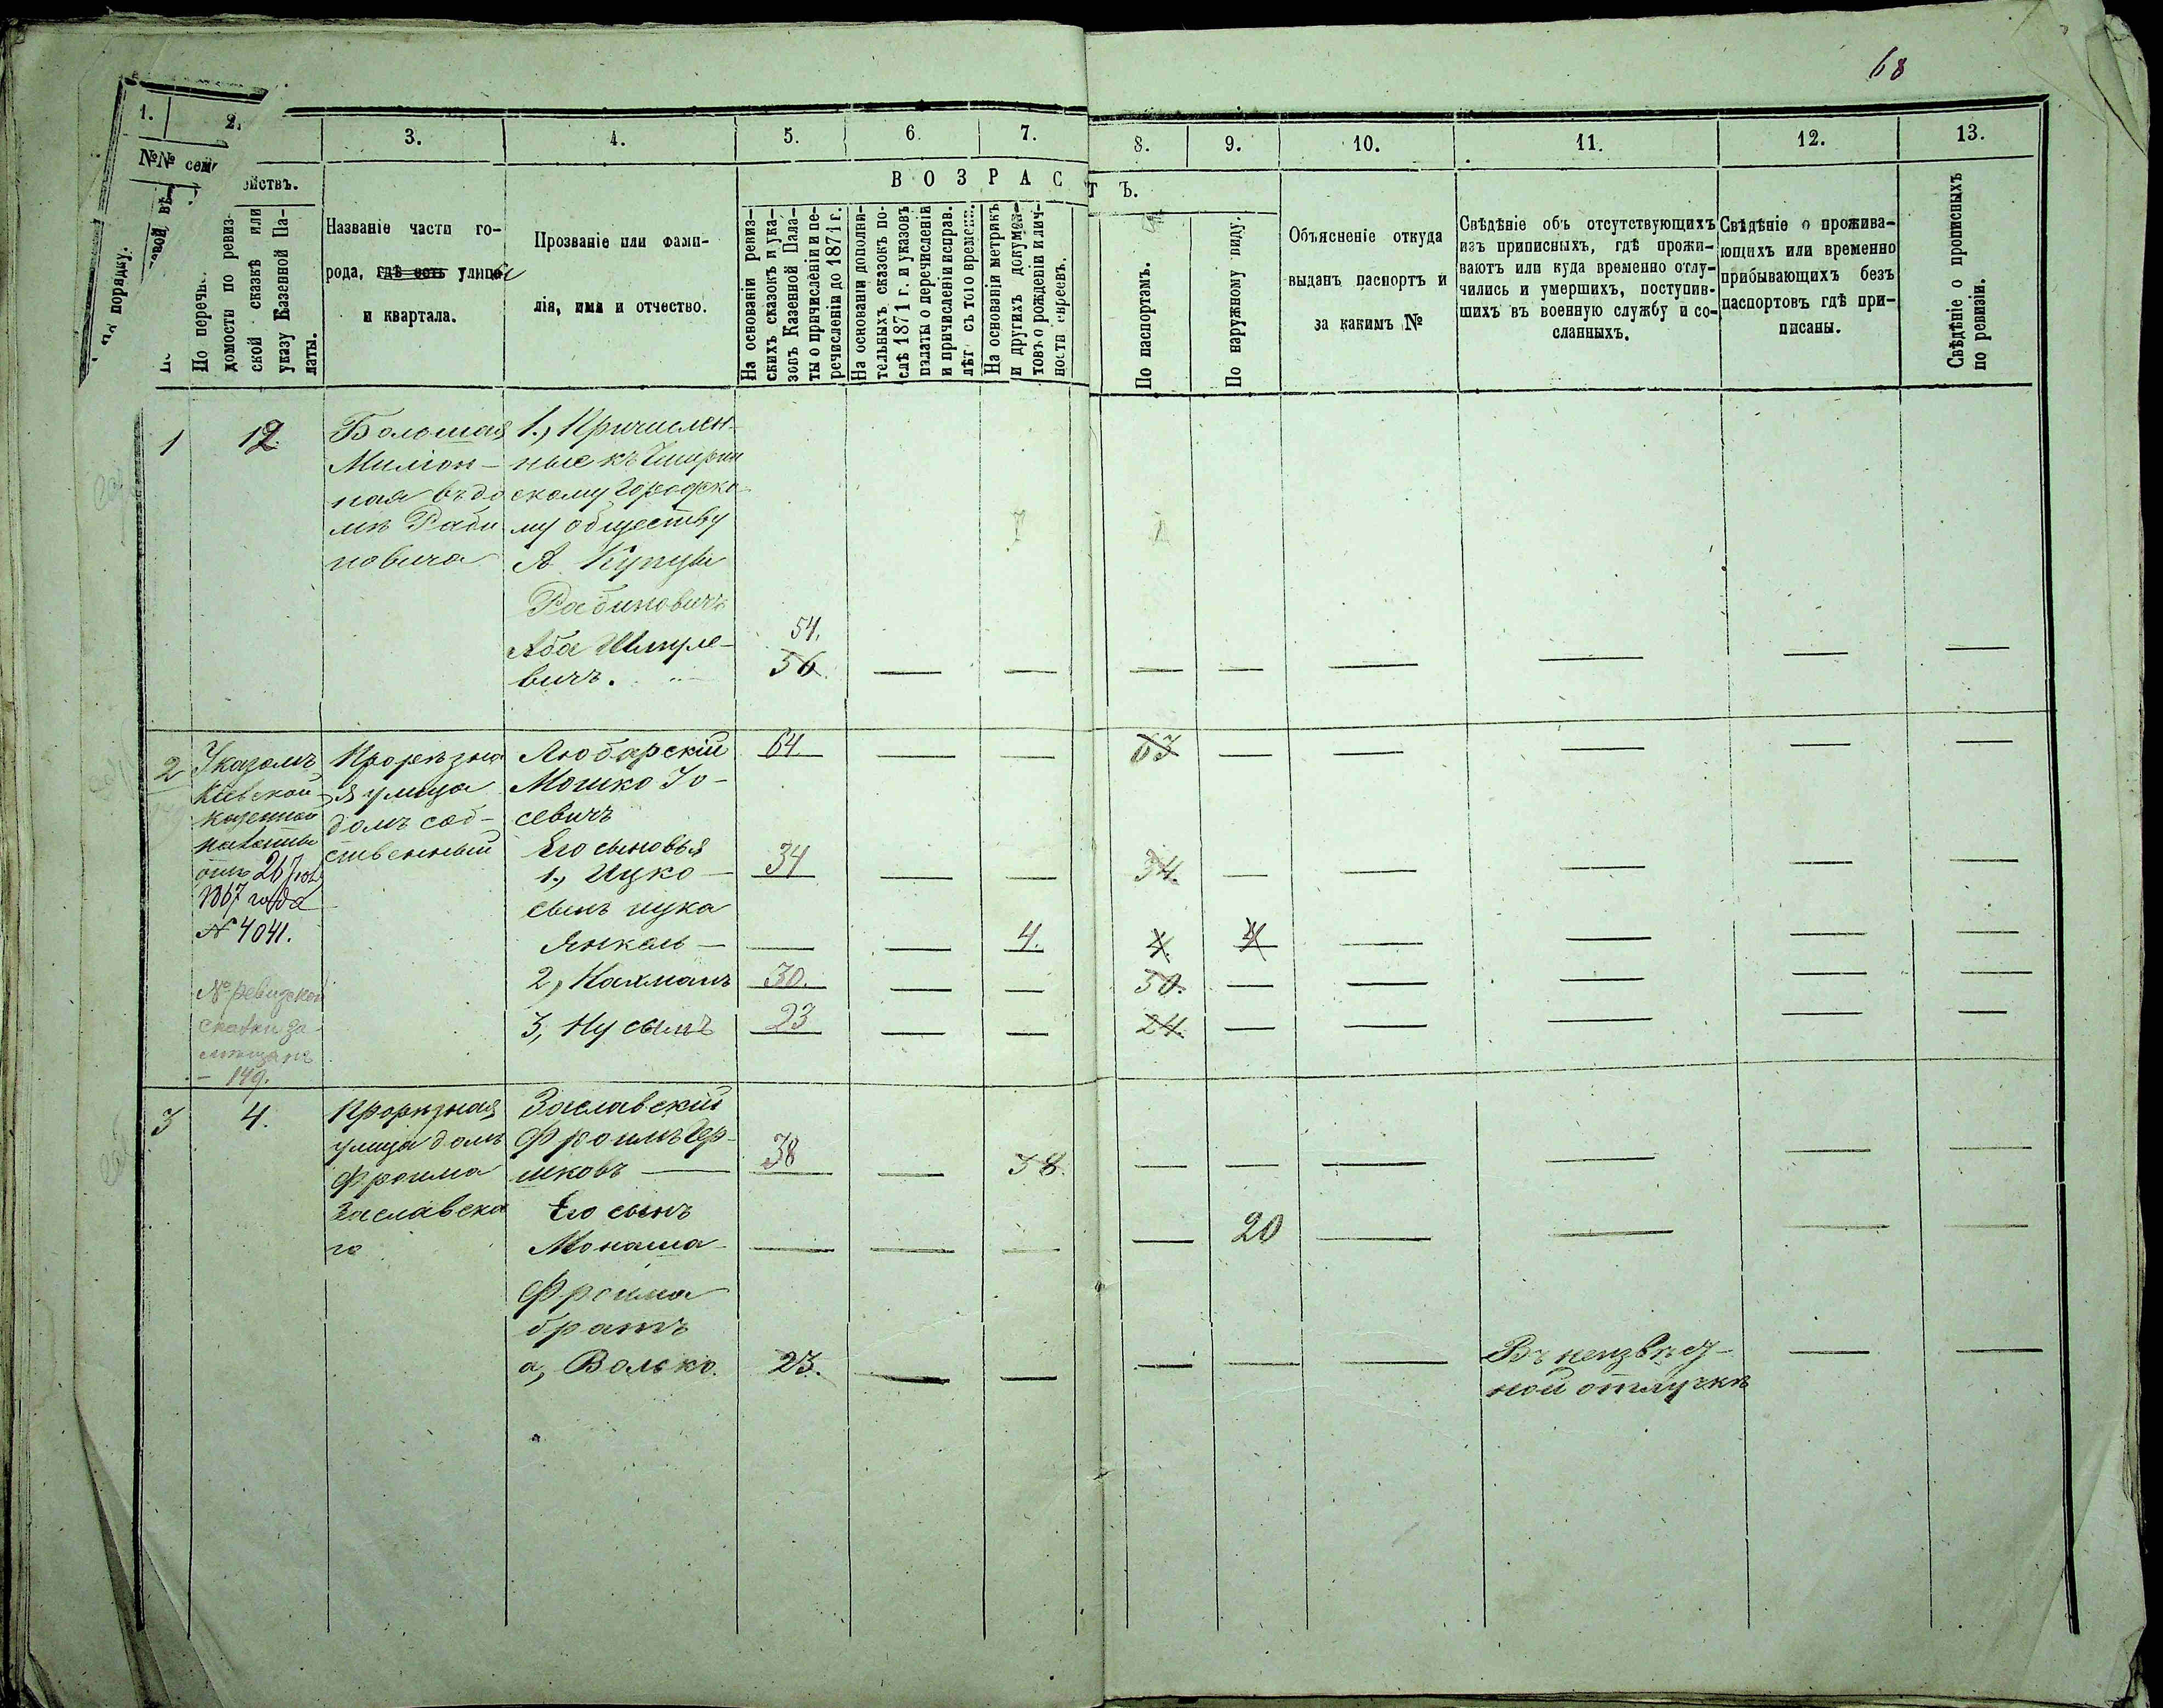 68
1.
2.
3.
4.
5.
6.
7.
8.
9.
10.
11.
12.
13.
№№ сем
ействъ.
порядку.
По перечн
домости по ревиз-
ской сказкѣ или
указу Казенной Па-
латы.
Названіе части го-
рода, гдѣ есть улицы
и квартала.
Прозваніе или фами-
лія, имя и отчество.
ВОЗРАСТЪ.
На основаніи ревиз-
скихъ сказокъ и ука-
зовъ Казенной Пала-
ты о причисленіи и пе-
речисленіи до 1871 г.
На основаніи дополни-
тельныхъ сказокъ по-
слѣ 1871 г. и указовъ
палаты о перечисленіи
и причисленіи исправ.
лѣт съ того времени.
На основаніи метрикъ
и другихъ докумен-
товъ о рожденіи и лич-
ности евреевъ.
По паспортамъ.
По наружному виду.
Объясненіе откуда
выданъ паспортъ и
за какимъ №
Свѣдѣніе объ отсутствующихъ
изъ приписныхъ, гдѣ прожи-
ваютъ или куда временно отлу-
чились и умершихъ, поступив-
шихъ въ военную службу и со-
сланныхъ.
Свѣдѣніе о прожива-
ющихъ или временно
прибывающихъ безъ
паспортовъ гдѣ при-
писаны.
Свѣдѣніе о прописныхъ
по ревизіи.
1
12
Большая
Миліон-
ная въ до
мѣ Раби
новича
1.) Причислен-
ные къ Чигрин
скому Городско-
му обществу
А. Купцы
Рабиновичъ
Аба Шмуле-
вичъ.
54.
56
— — — — — — — —
2
Указомъ
Кіевской
казенной
палаты
отъ 26
1867 года
№ 4041.
№ ревизской
сказки
— 149.
Прорѣзна
я улица
домъ соб-
ственный
Любарскій 64 — — 63 — — — — —
Мошко Іо-
севичъ
Его сыновья
1., Ицко — 34 — — 34. — — — — —
сынъ ицка
Янкель — — — 4. 4. 4 — — — —
2, Нахманъ 30. — — 30. — — — — —
3, Нусымъ 23 — — 24. — — — — —
3
4.
Прорѣзная
улица домъ
Фроима
Заславска
го
Заславскій
Фроимъ Гер-
шковъ — 38 — 38 — — — — — —
Его сынъ
Монаша — — — — 20 — — — —
Фроима
братъ
а, Волько. 23. — — — — — Въ неизвѣст- — —
ной отлучкѣ